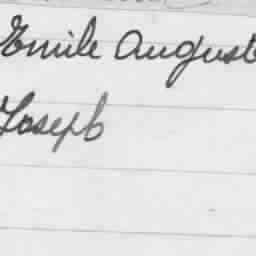 Emile August
Joseph